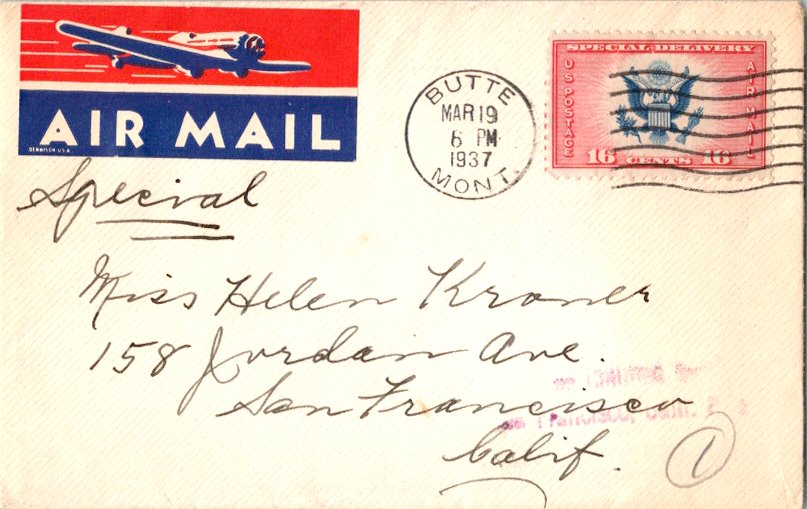 AIR MAIL
DENNISON U.S.A.
BUTTE
MAR 19
6 PM
1937
MONT.
SPECIAL DELIVERY
U S POSTAGE
AIR MAIL
16 CENTS 16
Special
Miss Helen Kroner
158 Jordan Ave.
San Francisco
Calif.
1